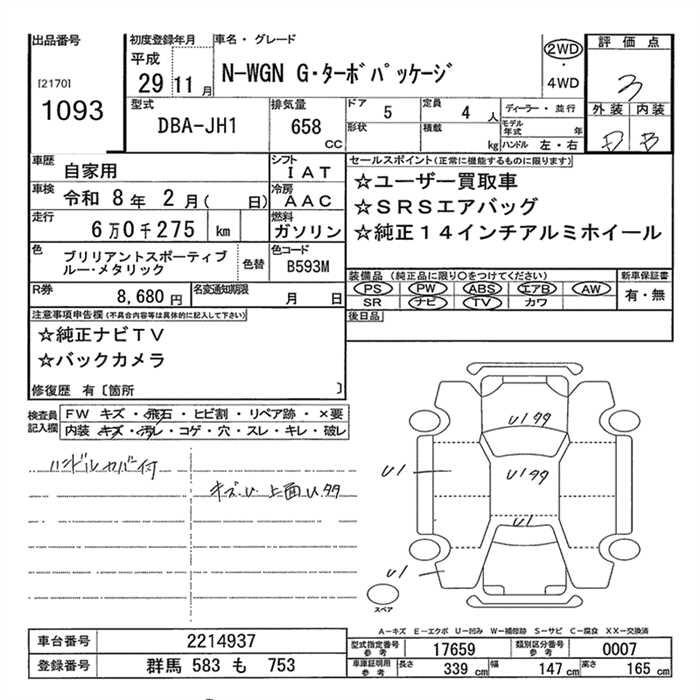 出品番号
[2170]
1093
初度登録年月
平成
29 11月
車名・グレード
N-WGN G・ターボパッケージ
2WD
・
4WD
評価点
3
外装 内装
D B
型式
DBA-JH1
排気量
658
CC
ドア
5
定員
4 人
形状
積載
kg
ディーラー・並行
モデル年式 年
ハンドル 左・右
車歴
自家用
シフト
IAT
車検
令和 8年 2月( 日)
冷房
AAC
走行
6万0千275 km
燃料
ガソリン
色
ブリリアントスポーティブ
ルー・メタリック
色替
色コード
B593M
R券
8,680円
名変通知期限
月 日
セールスポイント(正常に機能するものに限ります)
☆ユーザー買取車
☆SRSエアバッグ
☆純正14インチアルミホイール
装備品 (純正品に限り○をつけてください)
PS PW ABS エアB AW
SR ナビ TV カワ
新車保証書
有・無
後日品
注意事項申告欄(不具合内容等は具体的に記入して下さい)
☆純正ナビTV
☆バックカメラ
修復歴 有〔箇所 〕
検査員
記入欄
FW キズ・飛石・ヒビ割・リペア跡・×要
内装 キズ・汚レ・コゲ・穴・スレ・キレ・破レ
ハンドルカバー付
キズ.U. 上面U.タタ
U1タタ
U1
U1タタ
U1
U1
スペア
A-キズ E-エクボ U-凹み W-補修跡 S-サビ C-腐食 XX-交換済
車台番号
2214937
登録番号
群馬 583 も 753
型式指定番号
参考
17659
類別区分番号
参考
0007
車庫証明用
参考
長さ 339 cm
幅 147 cm
高さ 165 cm